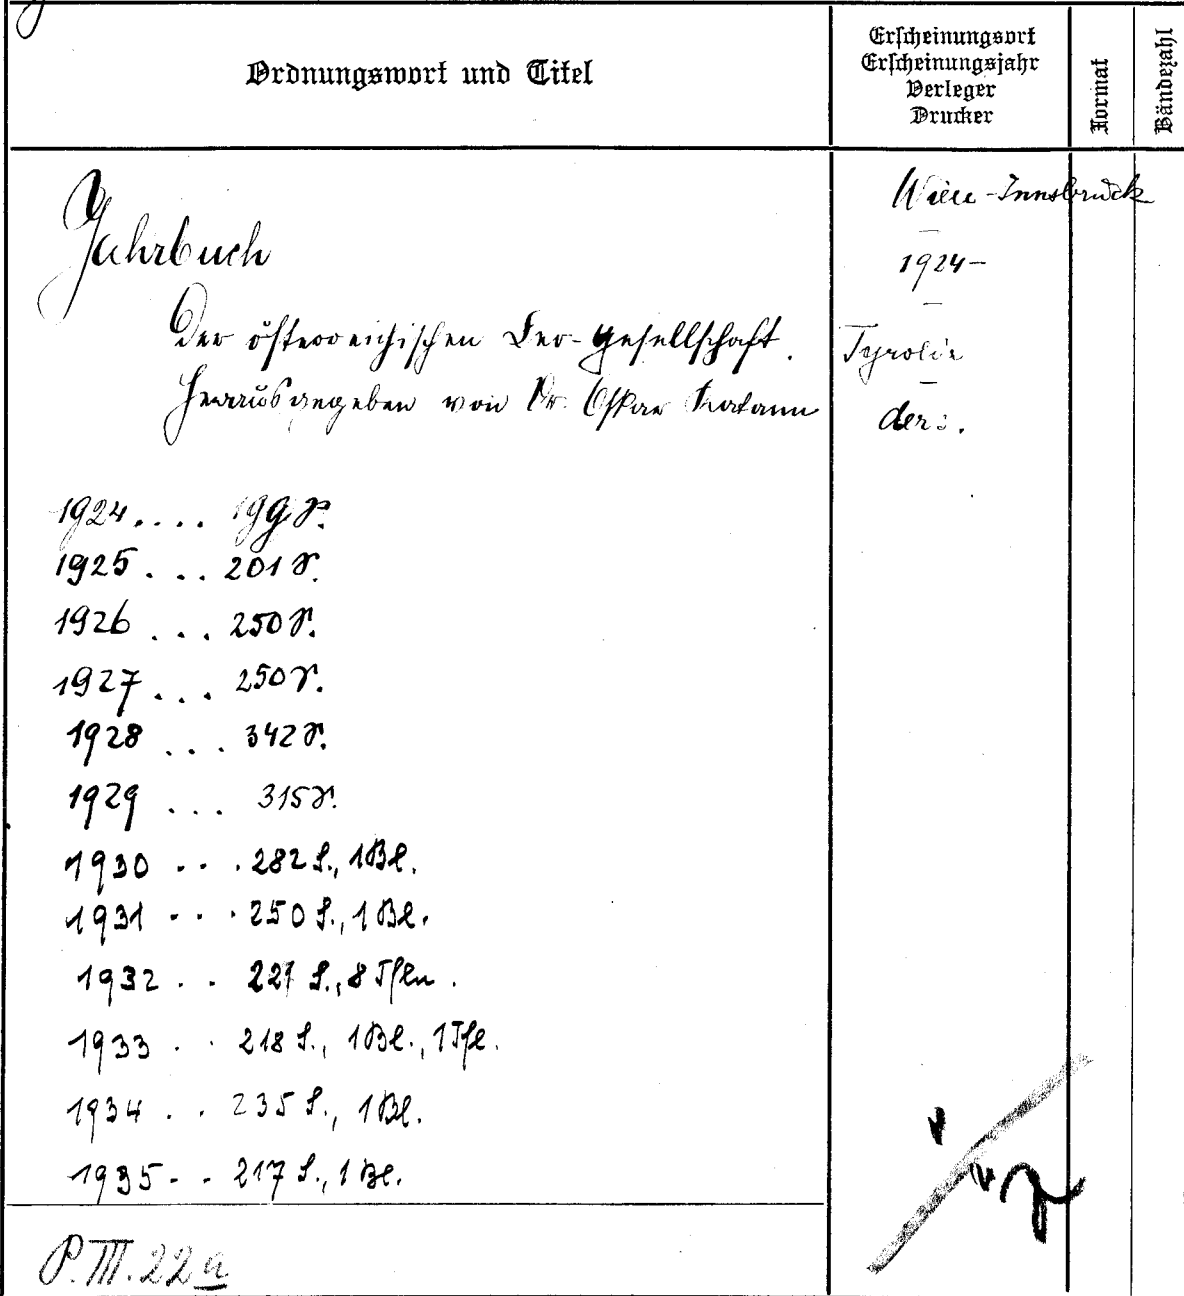 Ordnungswort und Titel
Erscheinungsort
Erscheinungsjahr
Verleger
Drucker
Format
Bändezahl
Jahrbuch
der österreichischen Leo-Gesellschaft.
Herausgegeben von Dr. Oskar Katann
Wien-Innsbruck
1924-
Tyrolia
ders.
1924.... 199 S.
1925... 201 S.
1926... 250 S.
1927... 250 S.
1928... 342 S.
1929... 315 S.
1930... 282 S., 1 Bl.
1931... 250 S., 1 Bl.
1932.. 227 S., 8 Tfln.
1933.. 218 S., 1 Bl., 1 Tfl.
1934.. 235 S., 1 Bl.
1935.. 217 S., 1 Bl.
P.III.22a